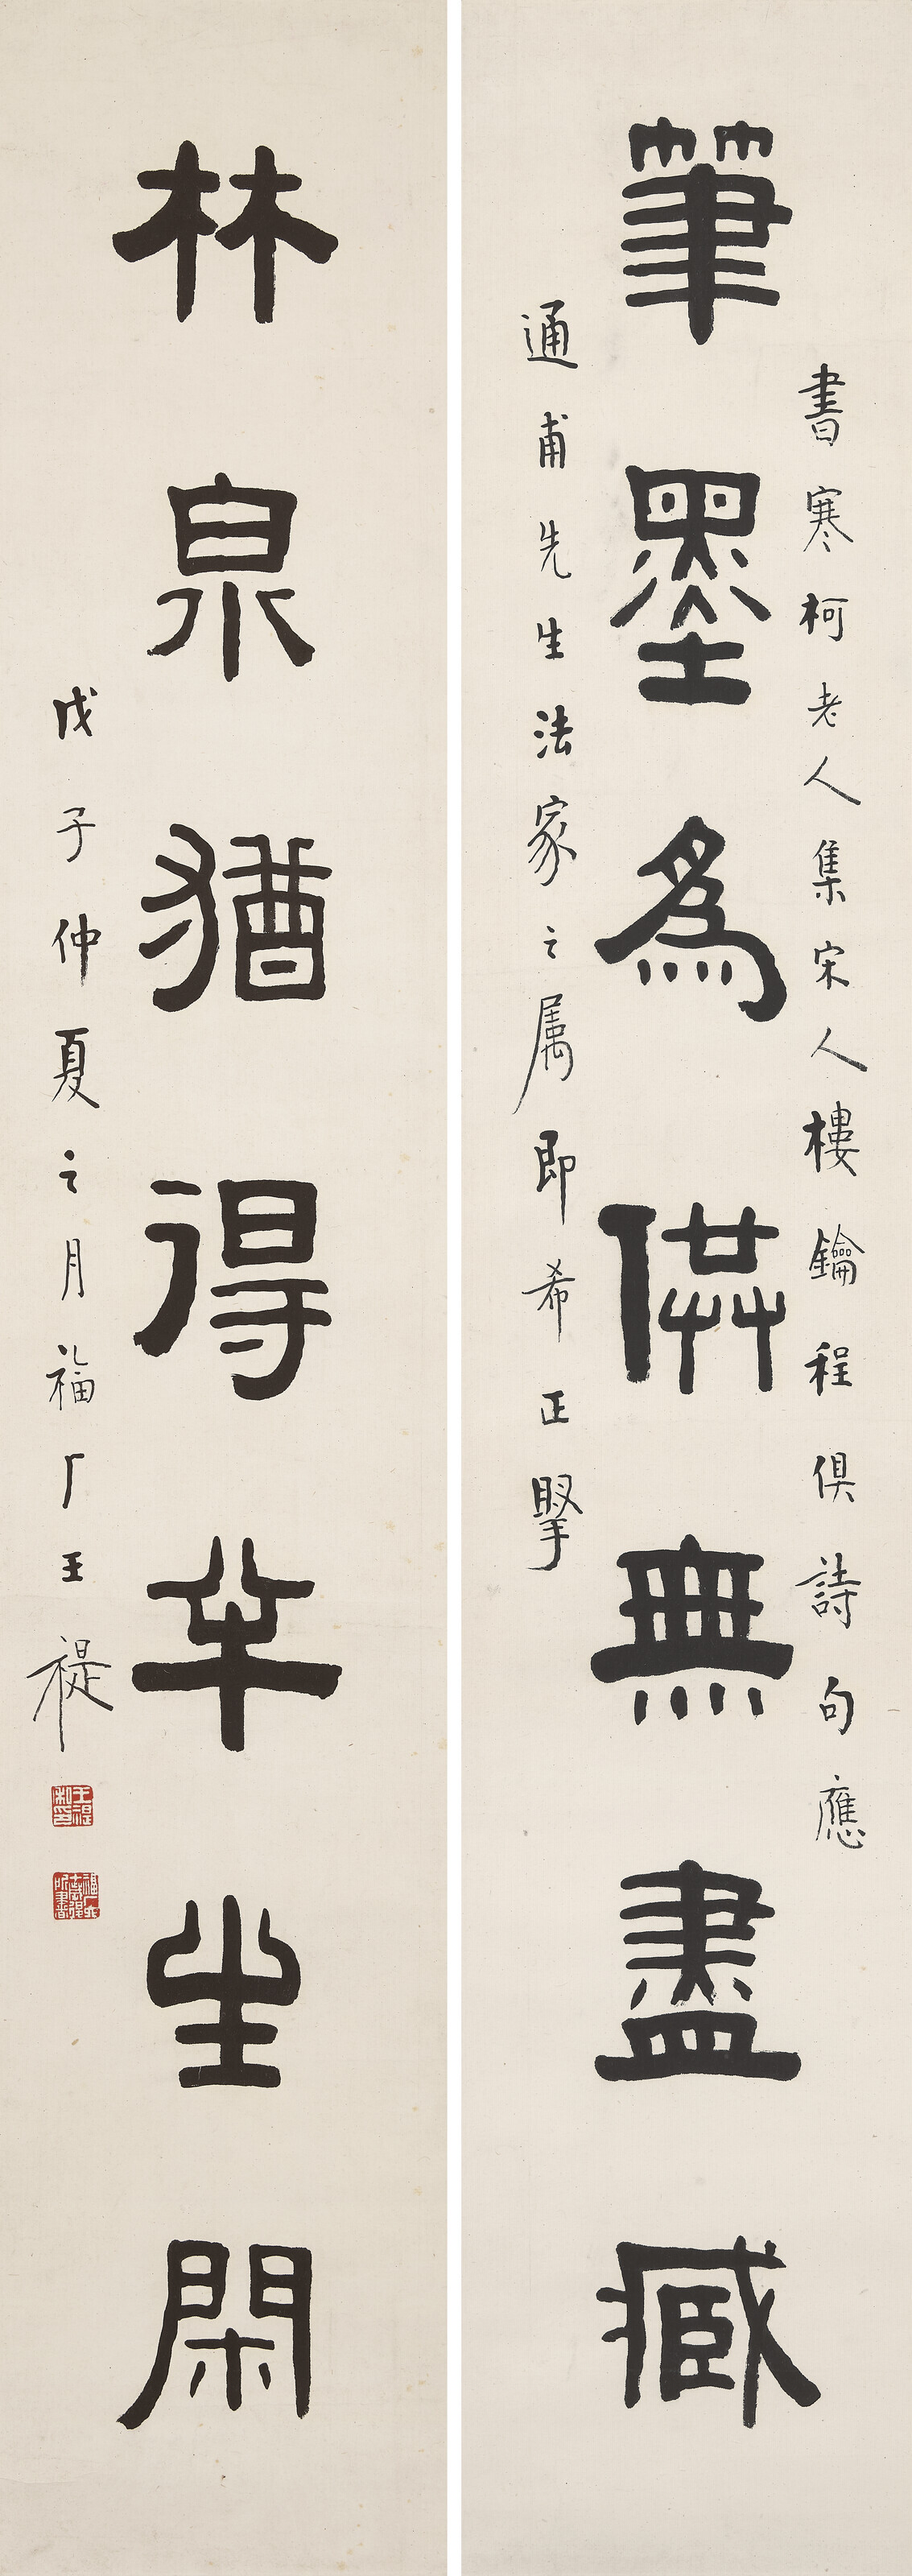 筆墨爲供無盡臧
書寒柯老人集宋人樓鑰程俱詩句應
通甫先生法家之属即希正掔
林泉猶得半生閑
戊子仲夏之月福厂王禔
王禔私印